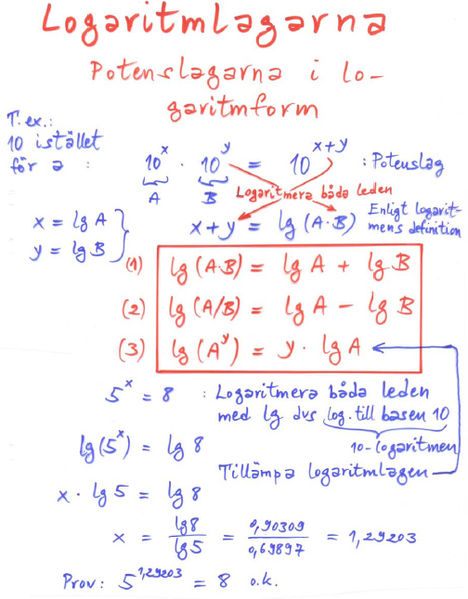 Logaritmlagarna
Potenslagarna i lo-
garitmform
T.ex.:
10 istället
för a :
10^x · 10^y = 10^(x+y) : Potenslag
A B
Logaritmera båda leden
x = lg A
y = lg B
x+y = lg (A·B)
Enligt logarit-
mens definition
(1) lg (A·B) = lg A + lg B
(2) lg (A/B) = lg A - lg B
(3) lg (A^y) = y · lg A
5^x = 8 : Logaritmera båda leden
med lg dvs log. till basen 10
10-logaritmen
lg(5^x) = lg 8
Tillämpa logaritmlagen
x · lg 5 = lg 8
x = lg 8 / lg 5 = 0,90309 / 0,69897 = 1,29203
Prov: 5^1,29203 = 8 o.k.